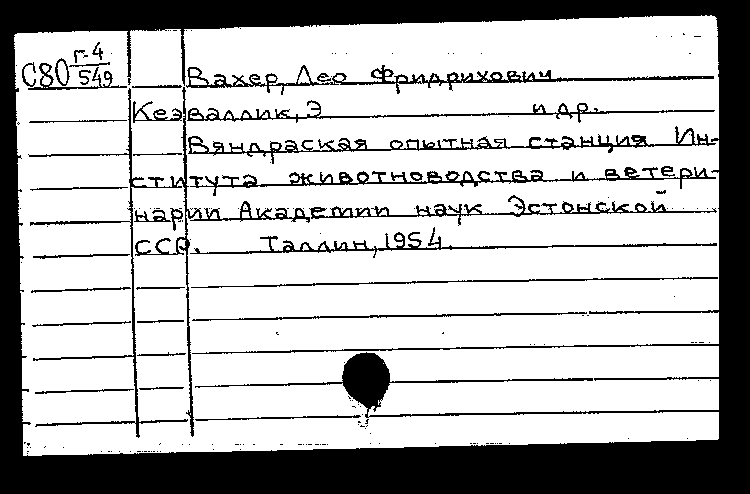 С80 г-4/549
Вахер, Лео Фридрихович
Кезваллик, Э и др.
Вяндраская опытная станция Ин-
ститута животноводства и ветери-
нарии Академии наук Эстонской
ССР. Таллин, 1954.